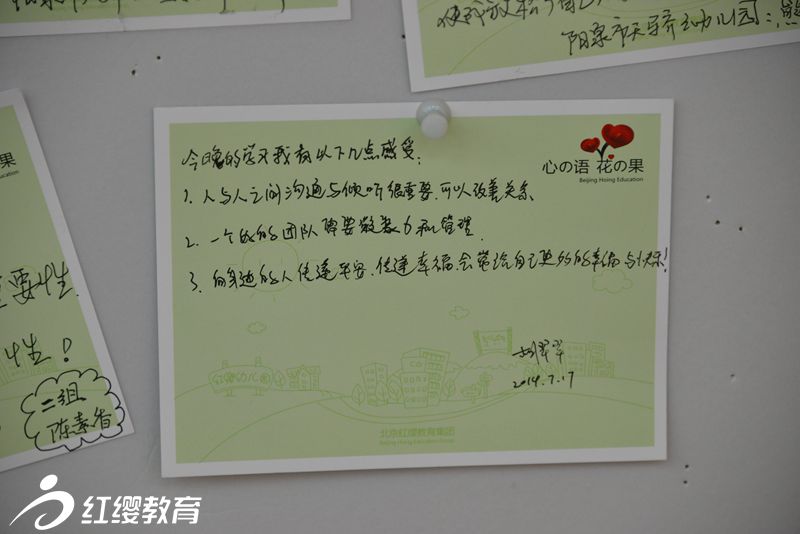 使
阳泉市天骄幼儿园:
今晚的学习我有以下几点感受:
心の语 花の果
Beijing Hoing Education
1. 人与人之间沟通与倾听很重要,可以改善关系
2. 一个好的团队需要凝聚力和管理
3. 向身边的人传递平安、传递幸福,会带给自己更多的幸福与快乐!
2014.7.17
红缨幼儿园
北京红缨教育集团
Beijing Hoing Education Group
果
Education
要性
性!
二组
陈素香
红缨教育